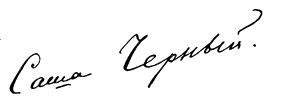 Саша Черный.